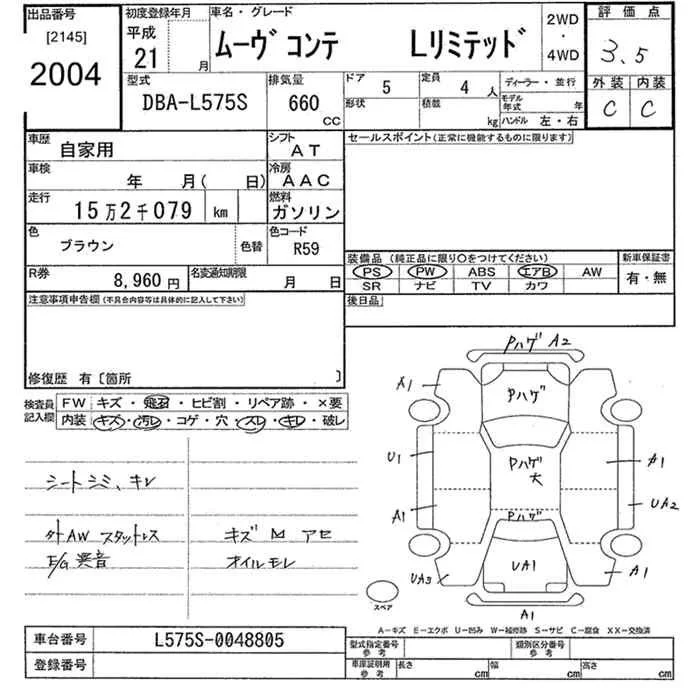 出品番号
[2145]
2004
初度登録年月
平成
21 月
車名・グレード
ムーヴ コンテ Lリミテッド
2WD
・
4WD
評価点
3.5
外装 内装
C C
型式
DBA-L575S
排気量
660
CC
ドア 5
形状
定員 4 人
積載 kg
ディーラー・並行
モデル年式 年
ハンドル 左・右
車歴
自家用
シフト
AT
車検
年 月( 日)
冷房
AAC
走行
15万2千079 km
燃料
ガソリン
色
ブラウン
色替
色コード
R59
R券
8,960 円
名変通知期限
月 日
セールスポイント(正常に機能するものに限ります)
装備品 (純正品に限り〇をつけてください)
PS PW ABS エアB AW
SR ナビ TV カワ
新車保証書
有・無
後日品
注意事項申告欄(不具合内容等は具体的に記入して下さい)
修復歴 有〔箇所 〕
検査員
記入欄
FW キズ・飛石・ヒビ割・リペア跡・×要
内装 キズ・汚レ・コゲ・穴・スレ・キレ・破レ
シートシミ、キレ
外AW スタットレス
E/G 異音
キズ M アセ
オイルモレ
Pハゲ A2
A1
Pハゲ
U1
Pハゲ
大
A1
A1
UA2
Pハゲ
UA3
UA1
A1
A1
スペア
A-キズ E-エクボ U-凹み W-補修跡 S-サビ C-腐食 XX-交換済
車台番号 L575S-0048805
登録番号
型式指定番号
参考
類別区分番号
参考
車庫証明用
参考
長さ cm
幅 cm
高さ cm